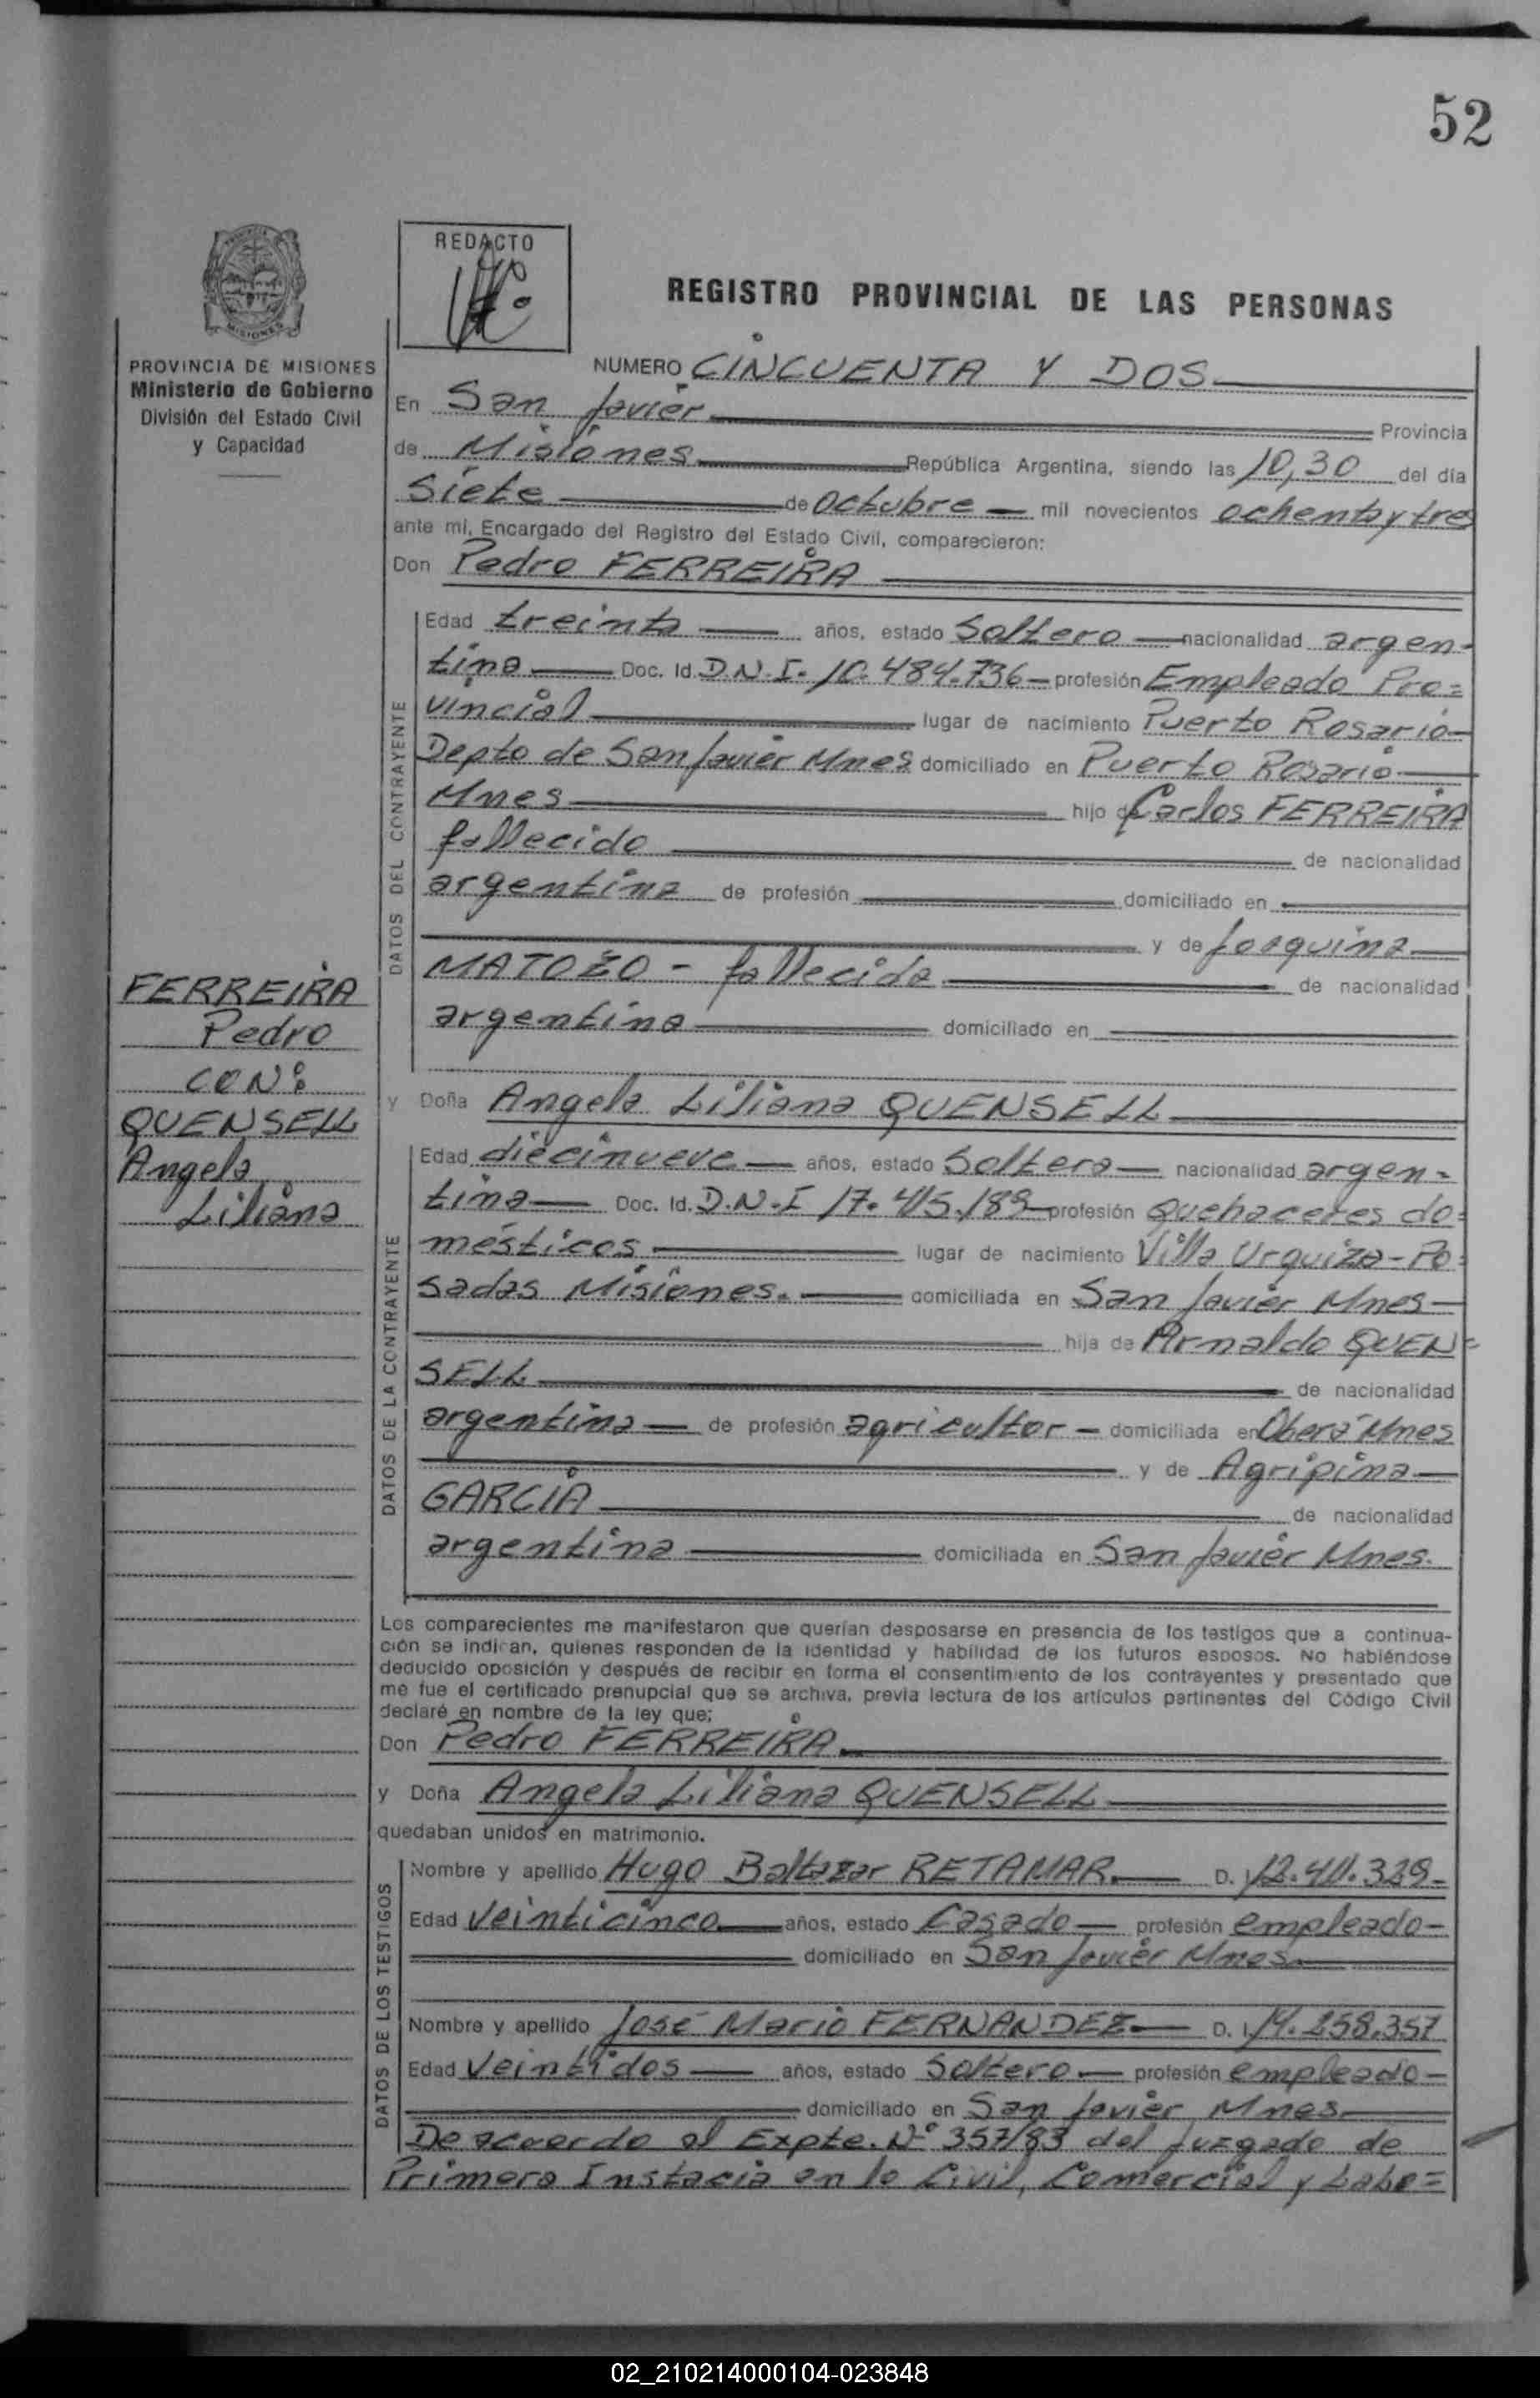 52
REDACTO
REGISTRO PROVINCIAL DE LAS PERSONAS
MISIONES
PROVINCIA DE MISIONES
Ministerio de Gobierno
División del Estado Civil
y Capacidad
NUMERO CINCUENTA Y DOS
En San Javier Provincia
de Misiones República Argentina, siendo las 10,30 del día
Siete de octubre mil novecientos ochenta y tres
ante mí, Encargado del Registro del Estado Civil, comparecieron:
Don Pedro FERREIRA
DATOS DEL CONTRAYENTE
Edad treinta años, estado Soltero nacionalidad argen-
tina Doc. Id. D.N.I. 10.484.736 profesión Empleado Pro=
vincial lugar de nacimiento Puerto Rosario
Depto de San Javier Mnes domiciliado en Puerto Rosario
Mnes hijo de Carlos FERREIRA
fallecido de nacionalidad
argentina de profesión domiciliado en
y de Joaquina
MATOZO - fallecida de nacionalidad
argentina domiciliado en
FERREIRA
Pedro
CON:
QUENSELL
Angela
Liliana
y Doña Angela Liliana QUENSELL
DATOS DE LA CONTRAYENTE
Edad diecinueve años, estado Soltera nacionalidad argen-
tina Doc. Id. D.N.I 17.415.189 profesión Quehaceres do=
mésticos lugar de nacimiento Villa Urquiza - Po=
sadas Misiones. domiciliada en San Javier Mnes
hija de Arnaldo QUEN=
SELL de nacionalidad
argentina de profesión agricultor domiciliada en Oberá Mnes
y de Agripina
GARCIA de nacionalidad
argentina domiciliada en San Javier Mnes.
Los comparecientes me manifestaron que querían desposarse en presencia de los testigos que a continua-
ción se indican, quienes responden de la identidad y habilidad de los futuros esposos. No habiéndose
deducido oposición y después de recibir en forma el consentimiento de los contrayentes y presentado que
me fue el certificado prenupcial que se archiva, previa lectura de los artículos pertinentes del Código Civil
declaré en nombre de la ley que;
Don Pedro FERREIRA
y Doña Angela Liliana QUENSELL
quedaban unidos en matrimonio.
DATOS DE LOS TESTIGOS
Nombre y apellido Hugo Baltazar RETAMAR D. I
Edad Veinticinco años, estado Casado profesión empleado
domiciliado en San Javier Mnes
Nombre y apellido José Mario FERNANDEZ D. I 14.258.357
Edad Veintidos años, estado Soltero profesión empleado
domiciliado en San Javier Mnes
De acuerdo al Expte. Nº 357/83 del Juzgado de
Primera Instacia en lo Civil, Comercial y Labo=
02_210214000104-023848